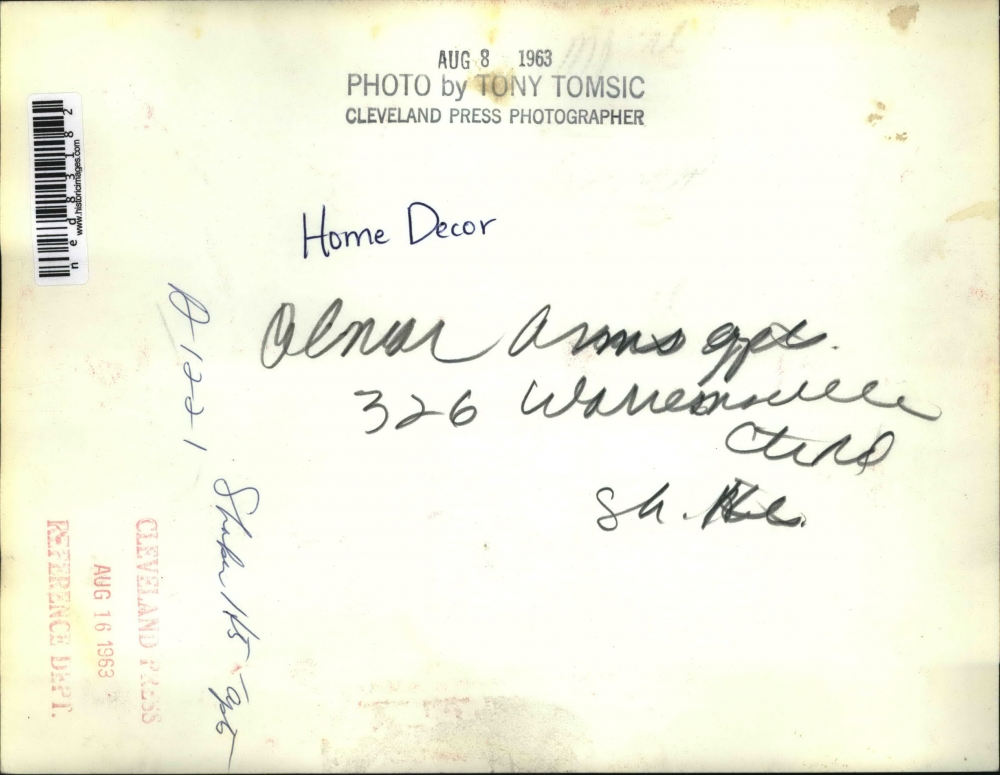 AUG 8 1963
PHOTO by TONY TOMSIC
CLEVELAND PRESS PHOTOGRAPHER
www.historicimages.com
ned83182
Home Decor
Almar Arms apt.
326 Warrensville
Ct Rd
Sh. Hts.
A-1221
Shaker Hts - apts
CLEVELAND PRESS
AUG 16 1963
REFERENCE DEPT.